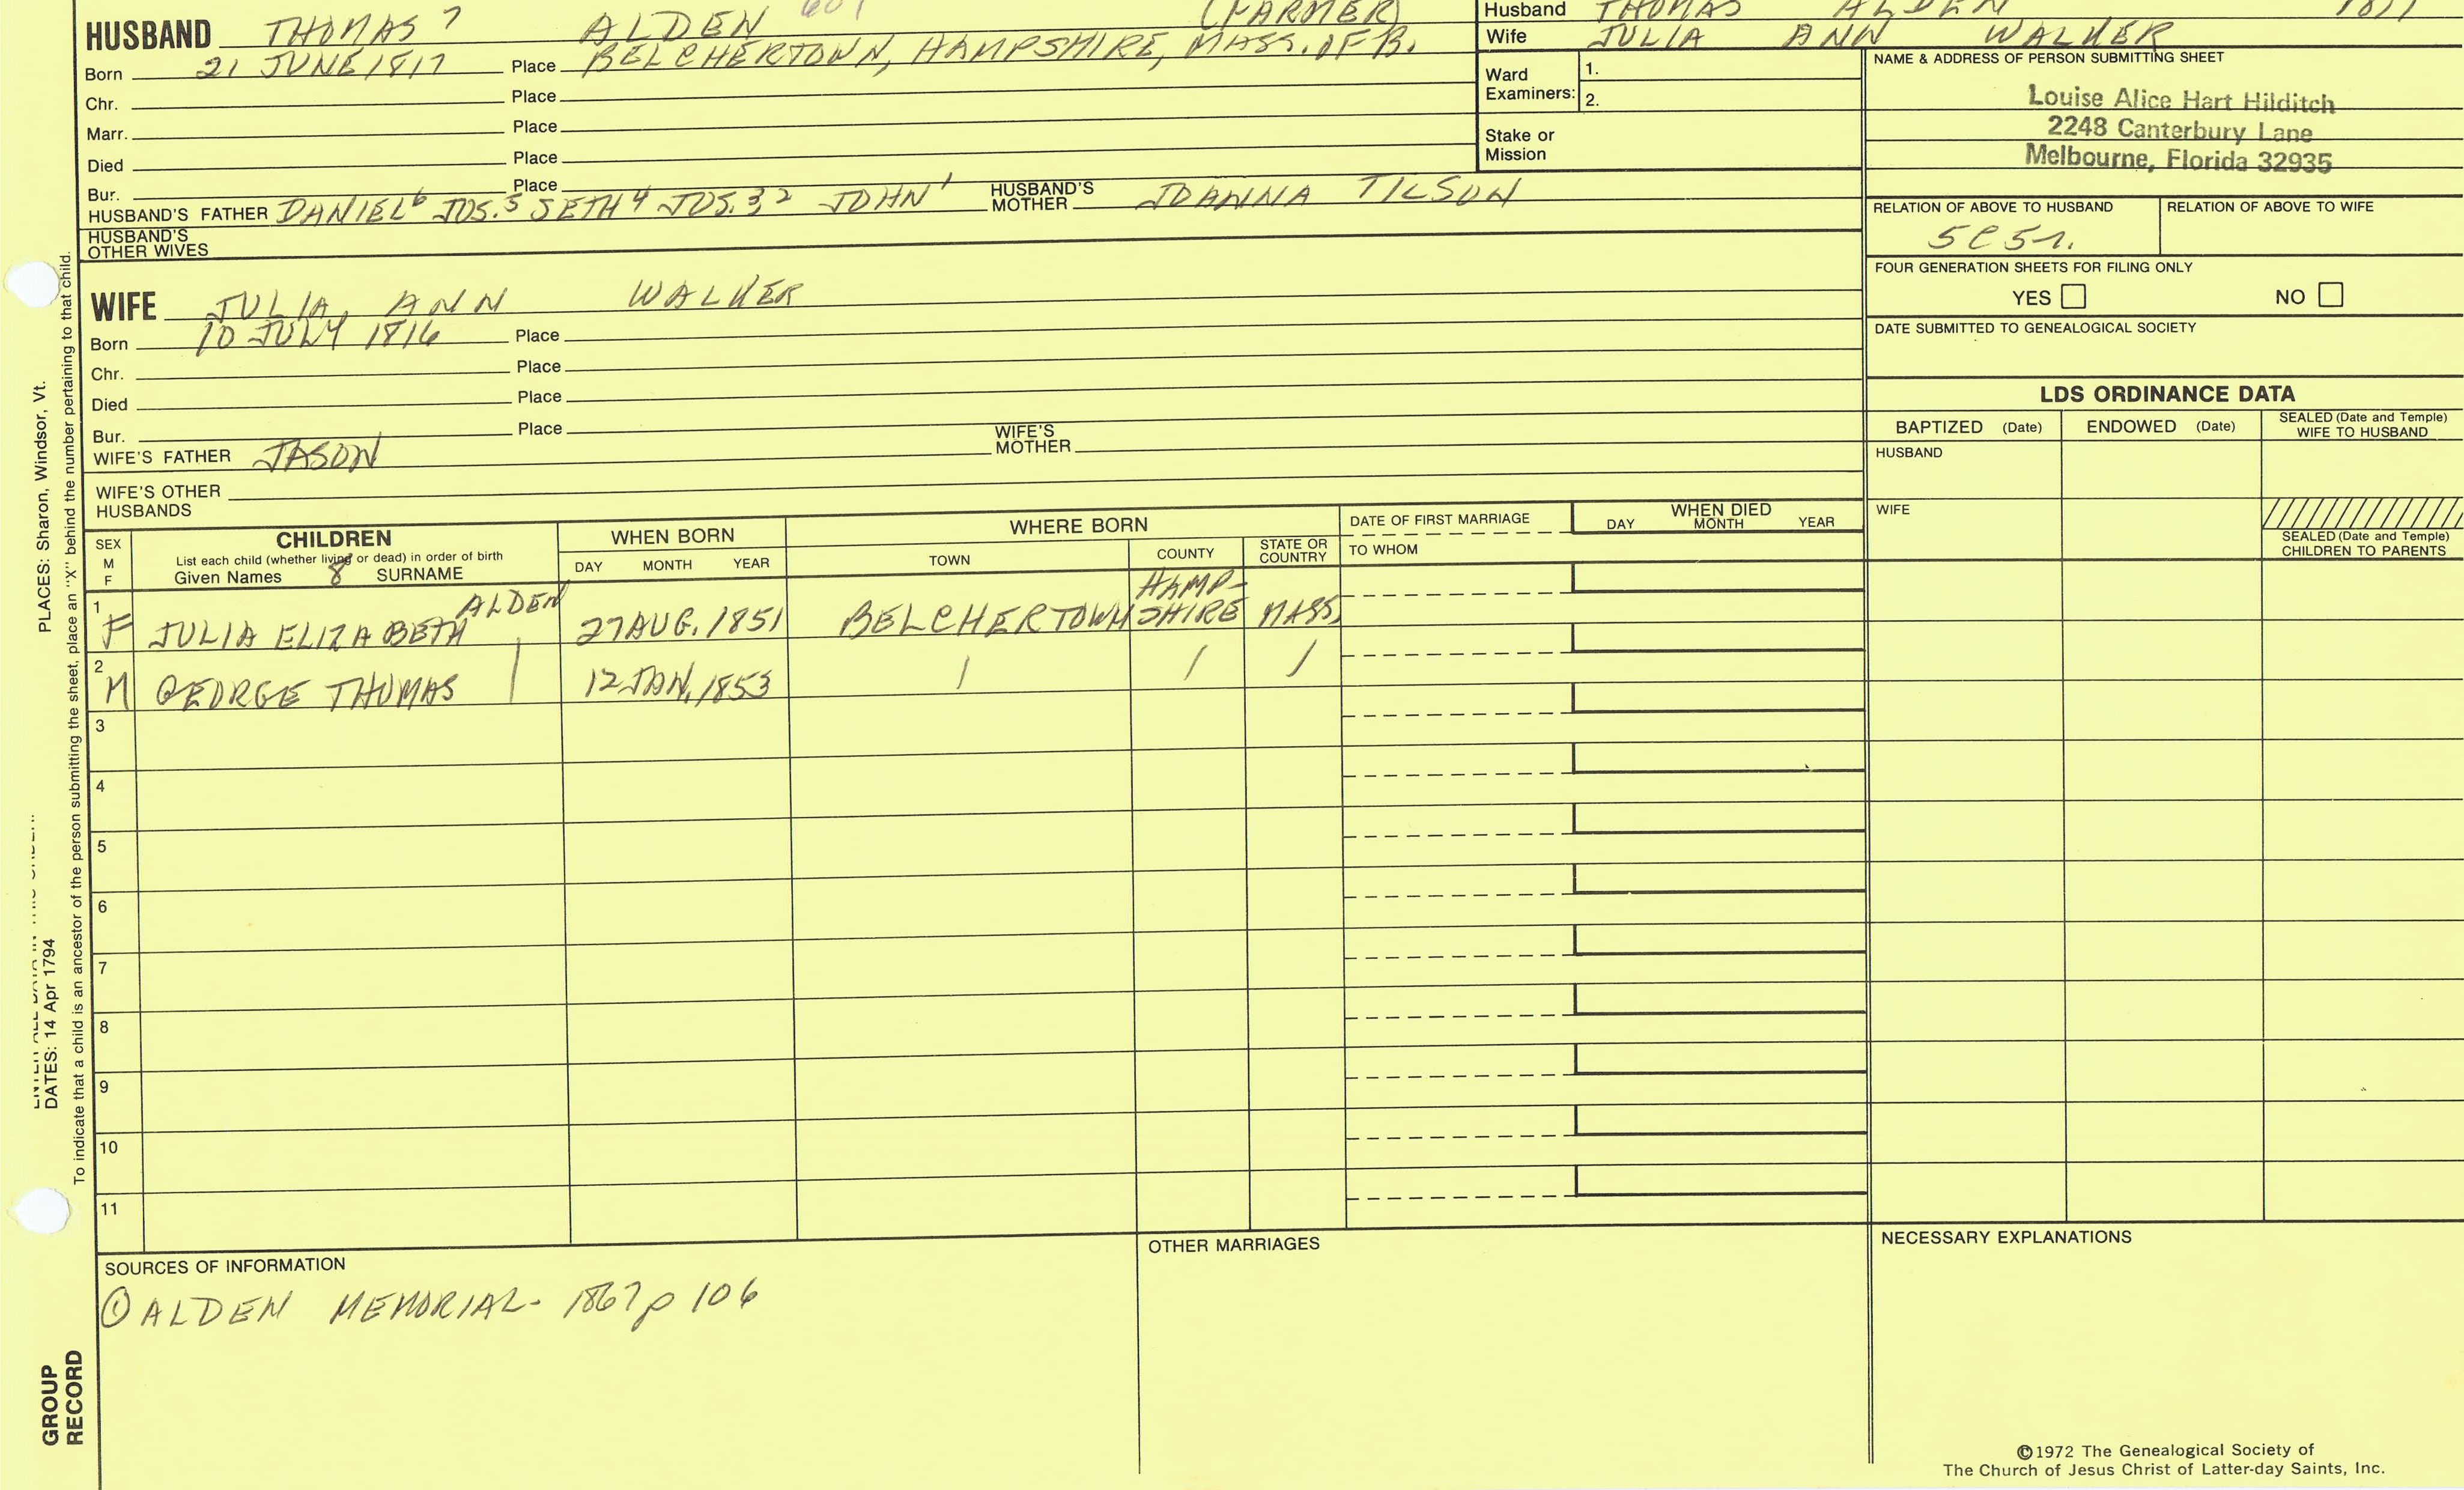 HUSBAND THOMAS 7 ALDEN 601 (FARMER)
Born 21 JUNE 1817 Place BELCHERTOWN, HAMPSHIRE, MASS. OF B.
Chr. Place
Marr. Place
Died Place
Bur. Place
HUSBAND'S FATHER DANIEL6 JOS.5 SETH4 JOS.3,2 JOHN1 HUSBAND'S MOTHER JOANNA TILSON
HUSBAND'S OTHER WIVES
WIFE JULIA ANN WALKER
Born 10 JULY 1816 Place
Chr. Place
Died Place
Bur. Place
WIFE'S FATHER JASON WIFE'S MOTHER
WIFE'S OTHER HUSBANDS
Husband THOMAS ALDEN 1817
Wife JULIA ANN WALKER
Ward Examiners: 1.
2.
Stake or Mission
NAME & ADDRESS OF PERSON SUBMITTING SHEET
Louise Alice Hart Hilditch
2248 Canterbury Lane
Melbourne, Florida 32935
RELATION OF ABOVE TO HUSBAND RELATION OF ABOVE TO WIFE
FOUR GENERATION SHEETS FOR FILING ONLY
YES NO
DATE SUBMITTED TO GENEALOGICAL SOCIETY
LDS ORDINANCE DATA
BAPTIZED (Date) ENDOWED (Date) SEALED (Date and Temple) WIFE TO HUSBAND
HUSBAND
WIFE
SEALED (Date and Temple) CHILDREN TO PARENTS
SEX M F
CHILDREN
List each child (whether living or dead) in order of birth
Given Names 8 SURNAME
WHEN BORN
DAY MONTH YEAR
WHERE BORN
TOWN COUNTY STATE OR COUNTRY
DATE OF FIRST MARRIAGE
TO WHOM
WHEN DIED
DAY MONTH YEAR
1 F JULIA ELIZABETH ALDEN 27 AUG. 1851 BELCHERTOWN HAMP-SHIRE MASS.
2 M GEORGE THOMAS | 12 JAN. 1853 / / /
3
4
5
6
7
8
9
10
11
SOURCES OF INFORMATION
① ALDEN MEMORIAL - 1867 p 106
OTHER MARRIAGES
NECESSARY EXPLANATIONS
©1972 The Genealogical Society of
The Church of Jesus Christ of Latter-day Saints, Inc.
PLACES: Sharon, Windsor, Vt.
DATES: 14 Apr 1794
To indicate that a child is an ancestor of the person submitting the sheet, place an "X" behind the number pertaining to that child.
GROUP
RECORD